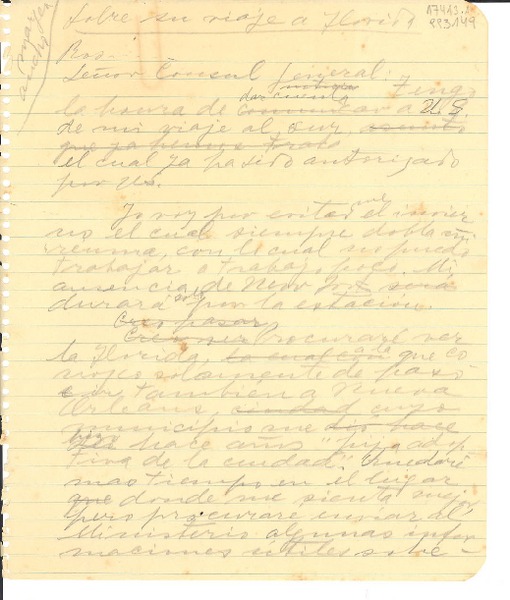 Sobre su viaje a Florida
17413.2
223149
Ros
Señor Consul General: Tengo
la honra de dar cuenta comunicar a U.S.
de mi viaje al sur, asunto
que ya hemos tratado
el cual ya ha sido autorizado
por Us.
Yo voy por evitarme el invier
no el cual siempre dobla mi
reuma, con lo cual no puedo
trabajar o trabajo poco. Mi
ausencia de New York será
durará por la estación.
Creo pasar
Procuraré ver
la Florida, la cual a la que co
nozco solamente de paso
e ir tambien a Nueva
Orleans, ciudad cuyo
municipio me
hizo hace años "hija adop
tiva de la ciudad". Quedaré
mas tiempo en el lugar
que donde me sienta mejor,
pero procuraré enviar al
Ministerio algunas infor
maciones utiles sobre -